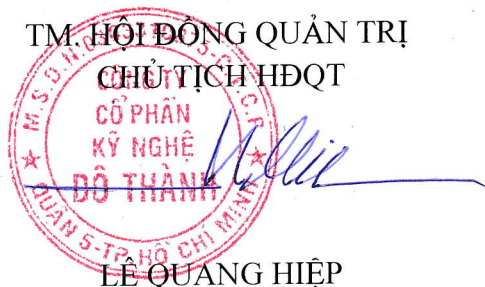 TM. HỘI ĐỒNG QUẢN TRỊ
CHỦ TỊCH HĐQT
CÔNG TY
CỔ PHẦN
KỸ NGHỆ
ĐÔ THÀNH
QUẬN 5-TP. HỒ CHÍ MINH
LÊ QUANG HIỆP